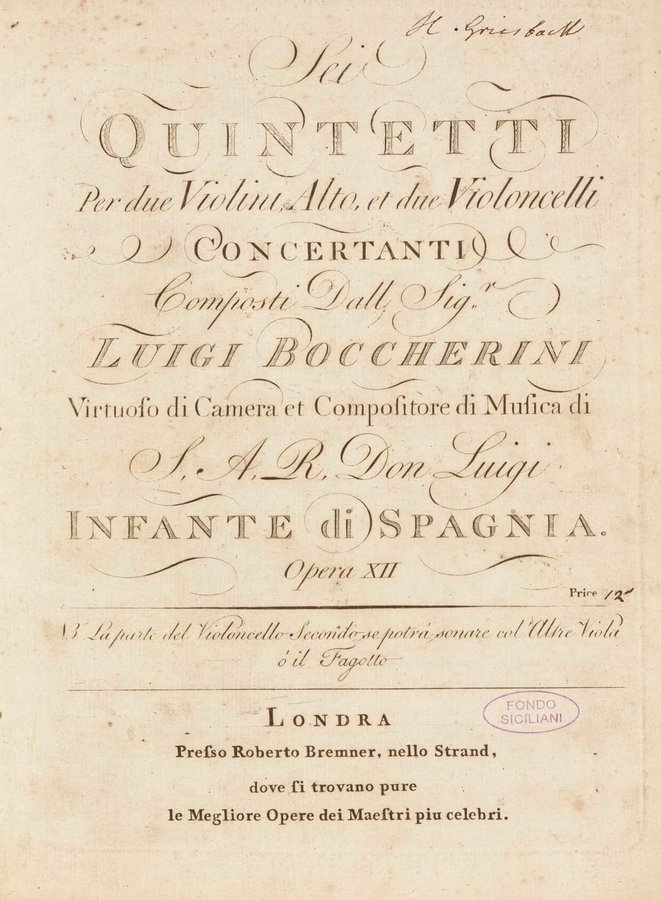 H. Griesbach
Sei
QUINTETTI
Per due Violini, Alto, et due Violoncelli
CONCERTANTI
Composti Dall Sig.r
LUIGI BOCCHERINI
Virtuoſo di Camera et Compoſitore di Muſica di
S. A. R. Don Luigi
INFANTE di SPAGNIA.
Opera XII
Price 12s
NB La parte del Violoncello Secondo se potrá sonare col' Altre Viola
ó il Fagotto
LONDRA
FONDO
SICILIANI
Preſso Roberto Bremner, nello Strand,
dove ſi trovano pure
le Megliore Opere dei Maeſtri piu celebri.